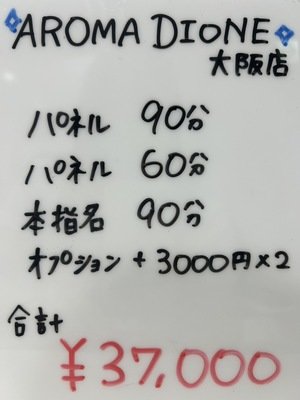 AROMA DIONE
大阪店
パネル 90分
パネル 60分
本指名 90分
オプション + 3000円×2
合計
¥37,000